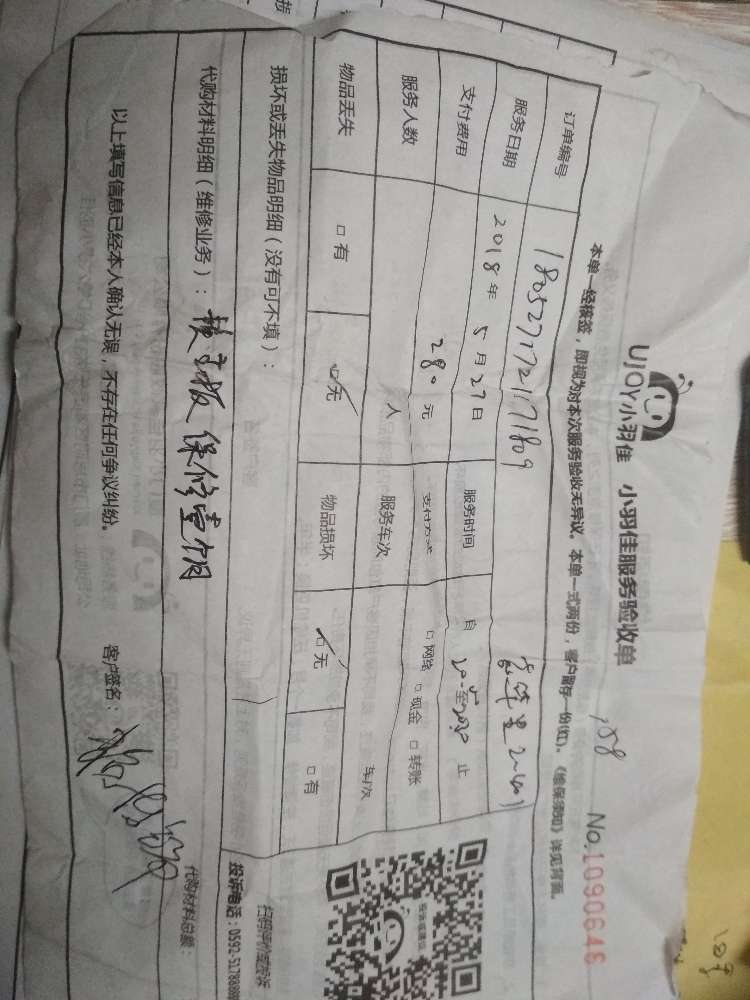 UJOY小羽佳 小羽佳服务验收单
158
No.1090646
本单一经核签，即视为对本次服务验收无异议。本单一式两份，客户留存一份(红)。《维保须知》详见背面。
订单编号 1805271721171809
服务日期 2018年5月27日 服务时间 自 至 止
支付费用 280元 支付方式 □网络 □现金 □转账
服务人数 人 服务车次 车/次
物品丢失 □有 □无 物品损坏 □无 □有
损坏或丢失物品明细（没有可不填）：
代购材料明细（维修业务）：换主板保修壹个月
代购材料总额：
以上填写信息已经本人确认无误，不存在任何争议纠纷。 客户签名：
投诉或建议
扫码评价或投诉
投诉电话：0592-5178888